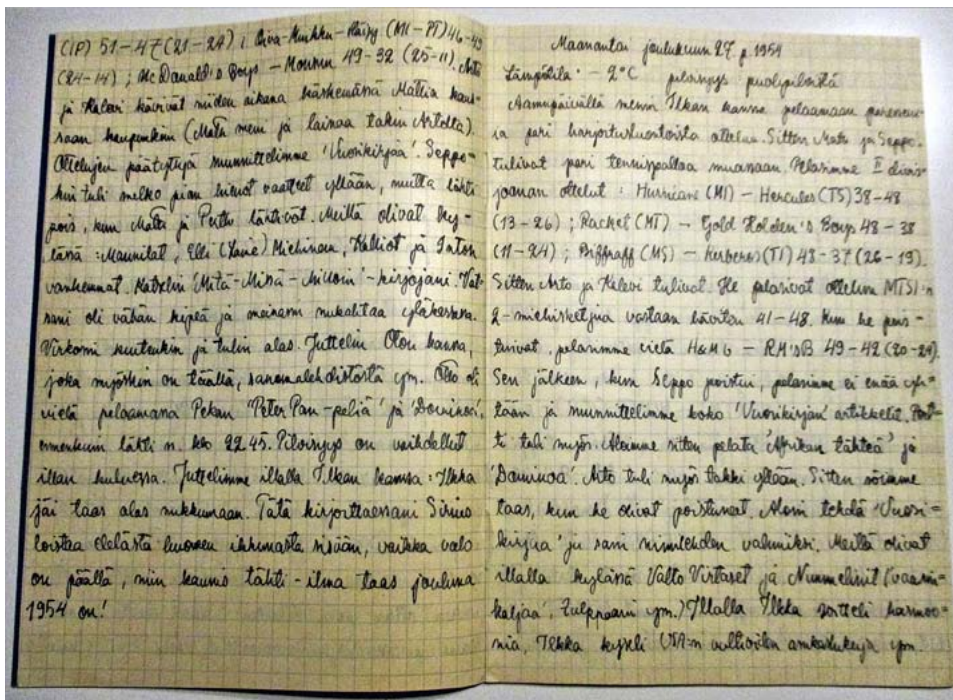 (IP) 51-47 (21-24) ; Oiva-Kurkku-Häipy (MI-PT) 46-49
(24-14) ; McDanald's Boys - 49-32 (25-11). Arto
ja Kalevi kävivät niiden aikana käskemässä Mattia kans-
saan kaupunkiin (Matti meni ja lainaa takin Artolta).
Ottelujen päätyttyä suunnittelimme 'Vuosikirjaa'. Seppo-
kin tuli melko pian hienot vaatteet yllään, mutta lähti
pois, kun Matti ja Pertti lähtivät. Meillä olivat ky-
lässä : Maunilat, Elli (Lane) Michinen, Kalliot ja Inton
vanhemmat. Katselin 'Mitä-Missä-Milloin' -kirjojani. Vat-
sani oli vähän kipeä ja meinasin nukahtaa yläkerrassa.
Virkosin kuitenkin ja tulin alas. Juttelin Oton kanssa,
joka myöskin on täällä, sanomalehdistöstä ym. Otto oli
vielä pelaamassa Pekan 'Peter Pan-peliä' ja 'Dominoa',
ennenkuin lähti n. klo 22.45. Pilvisyys on vaihdellut
illan kuluessa. Juttelimme illalla Ilkan kanssa : Ilkka
jäi taas alas nukkumaan. Tätä kirjoittaessani Sirius
loistaa etelästä huoneen ikkunasta sisään, vaikka valo
on päällä, niin kaunis tähti-ilma taas jouluna
1954 on!
Maanantai joulukuun 27. p. 1954
Lämpötila - 2°C pilvisyys puolipilvistä
Aamupäivällä menin Ilkan kanssa pelaamaan
ja pari harjoitusluontoista ottelua. Sitten Mats ja Seppo
tulivat pari tennispalloa muassaan. Pelasimme II divis-
joonan ottelut : Hurricane (MI) - Hercules (TS) 38-48
(13-26) ; Racket (MT) - Gold Holden's Boys 48-38
(11-24) ; Riffraff (MS) - Kerberos (TI) 48-37 (26-19).
Sitten Arto ja Kalevi tulivat. He pelasivat ottelun MTSI:n
2-miehisketjua vastaan häviten 41-48. Kun he pois-
tuivat, pelasimme vielä H&MG - RM'sB 49-42 (20-24).
Sen jälkeen, kun Seppo poistui, pelasimme ei enää yh-
tään ja suunnittelimme koko 'Vuosikirjan' artikkelit. Pert-
ti tuli myös. Aloimme sitten pelata 'Afrikan tähteä' ja
'Dominoa'. Arto tuli myös takki yllään. Sitten söimme
taas, kun he olivat poistuneet. Aloin tehdä 'Vuosi-
kirjaa' ja sain nimilehden valmiiksi. Meillä olivat
illalla kylässä Valto Virtaset ja Nummeliinit (vaarin-
kaljaa', Tulppaani ym.) Illalla Ilkka soitteli harmoo-
nia, Ilkka kyseli USA:n valtioiden asukaslukuja ym.